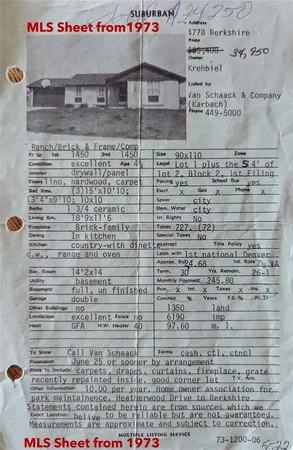 SUBURBAN
24,250
MLS Sheet from1973
Address
4778 Berkshire
Price
$35,400 34,950
Owner
Krehbiel
Listed by
Van Schaack & Company
(Karbach)
Phone 449-5000
Ranch/Brick & Frame/Comp
1450 1450
Size 90x110 Zone
Condition excellent Age 4½
Legal Lot 1 plus the S 4' of
lot 2, Block 2, 1st Filing
Interior drywall/panel
Floors lino, hardwood, carpet
Paving yes School Bus yes
Elect. X Gas X Phone X
Bed Rms. (3)15'x10'10;
13'4"x9'10; 10x10
Sewer city
Dom. Water city
Baths 3/4 ceramic
Living Rm. 18'9x11'6
Irr. Rights No
Fireplace Brick-family
Taxes 727. (72)
Dining In kitchen
Special Taxes No
Kitchen country-with dinette
Abstract Title Policy yes
d.w., range and oven
Loan 1st national Denver
Approx. Bal. Int. Rate 7½ VA
Rec. Room 14'2x14
Term 30 Yrs. Remain. 26-1
Utility basement
Monthly Payment 245.80
Basement full, un finished
Prin. X Int. X Taxes X Ins. X
Garage double
Commit % Years
Other Buildings no
1350 land
Landscaping excellent Fence no
6190 imp
Heat GFA H.W. Heater 40
97.60 m. l.
To Show Call Van Schaack
Terms cash, ctl, ctncl
Possession June 25 or sooner by arrangement
Price to Include: carpets, drapes, curtains, fireplace, grate
recently repainted inside, good corner lot T.V. Ant.
Other Information 10.00 per year, Home owner association for
park maintainence, Heatherwood Drive to Berkshire.
Statements contained herein are from sources which we
Exact Location: belive to be reliable but are not guaranteed.
Measurements are approximate and subject to correction.
MLS Sheet from 1973
MULTIPLE LISTING SERVICE
73-1200-06
5-22